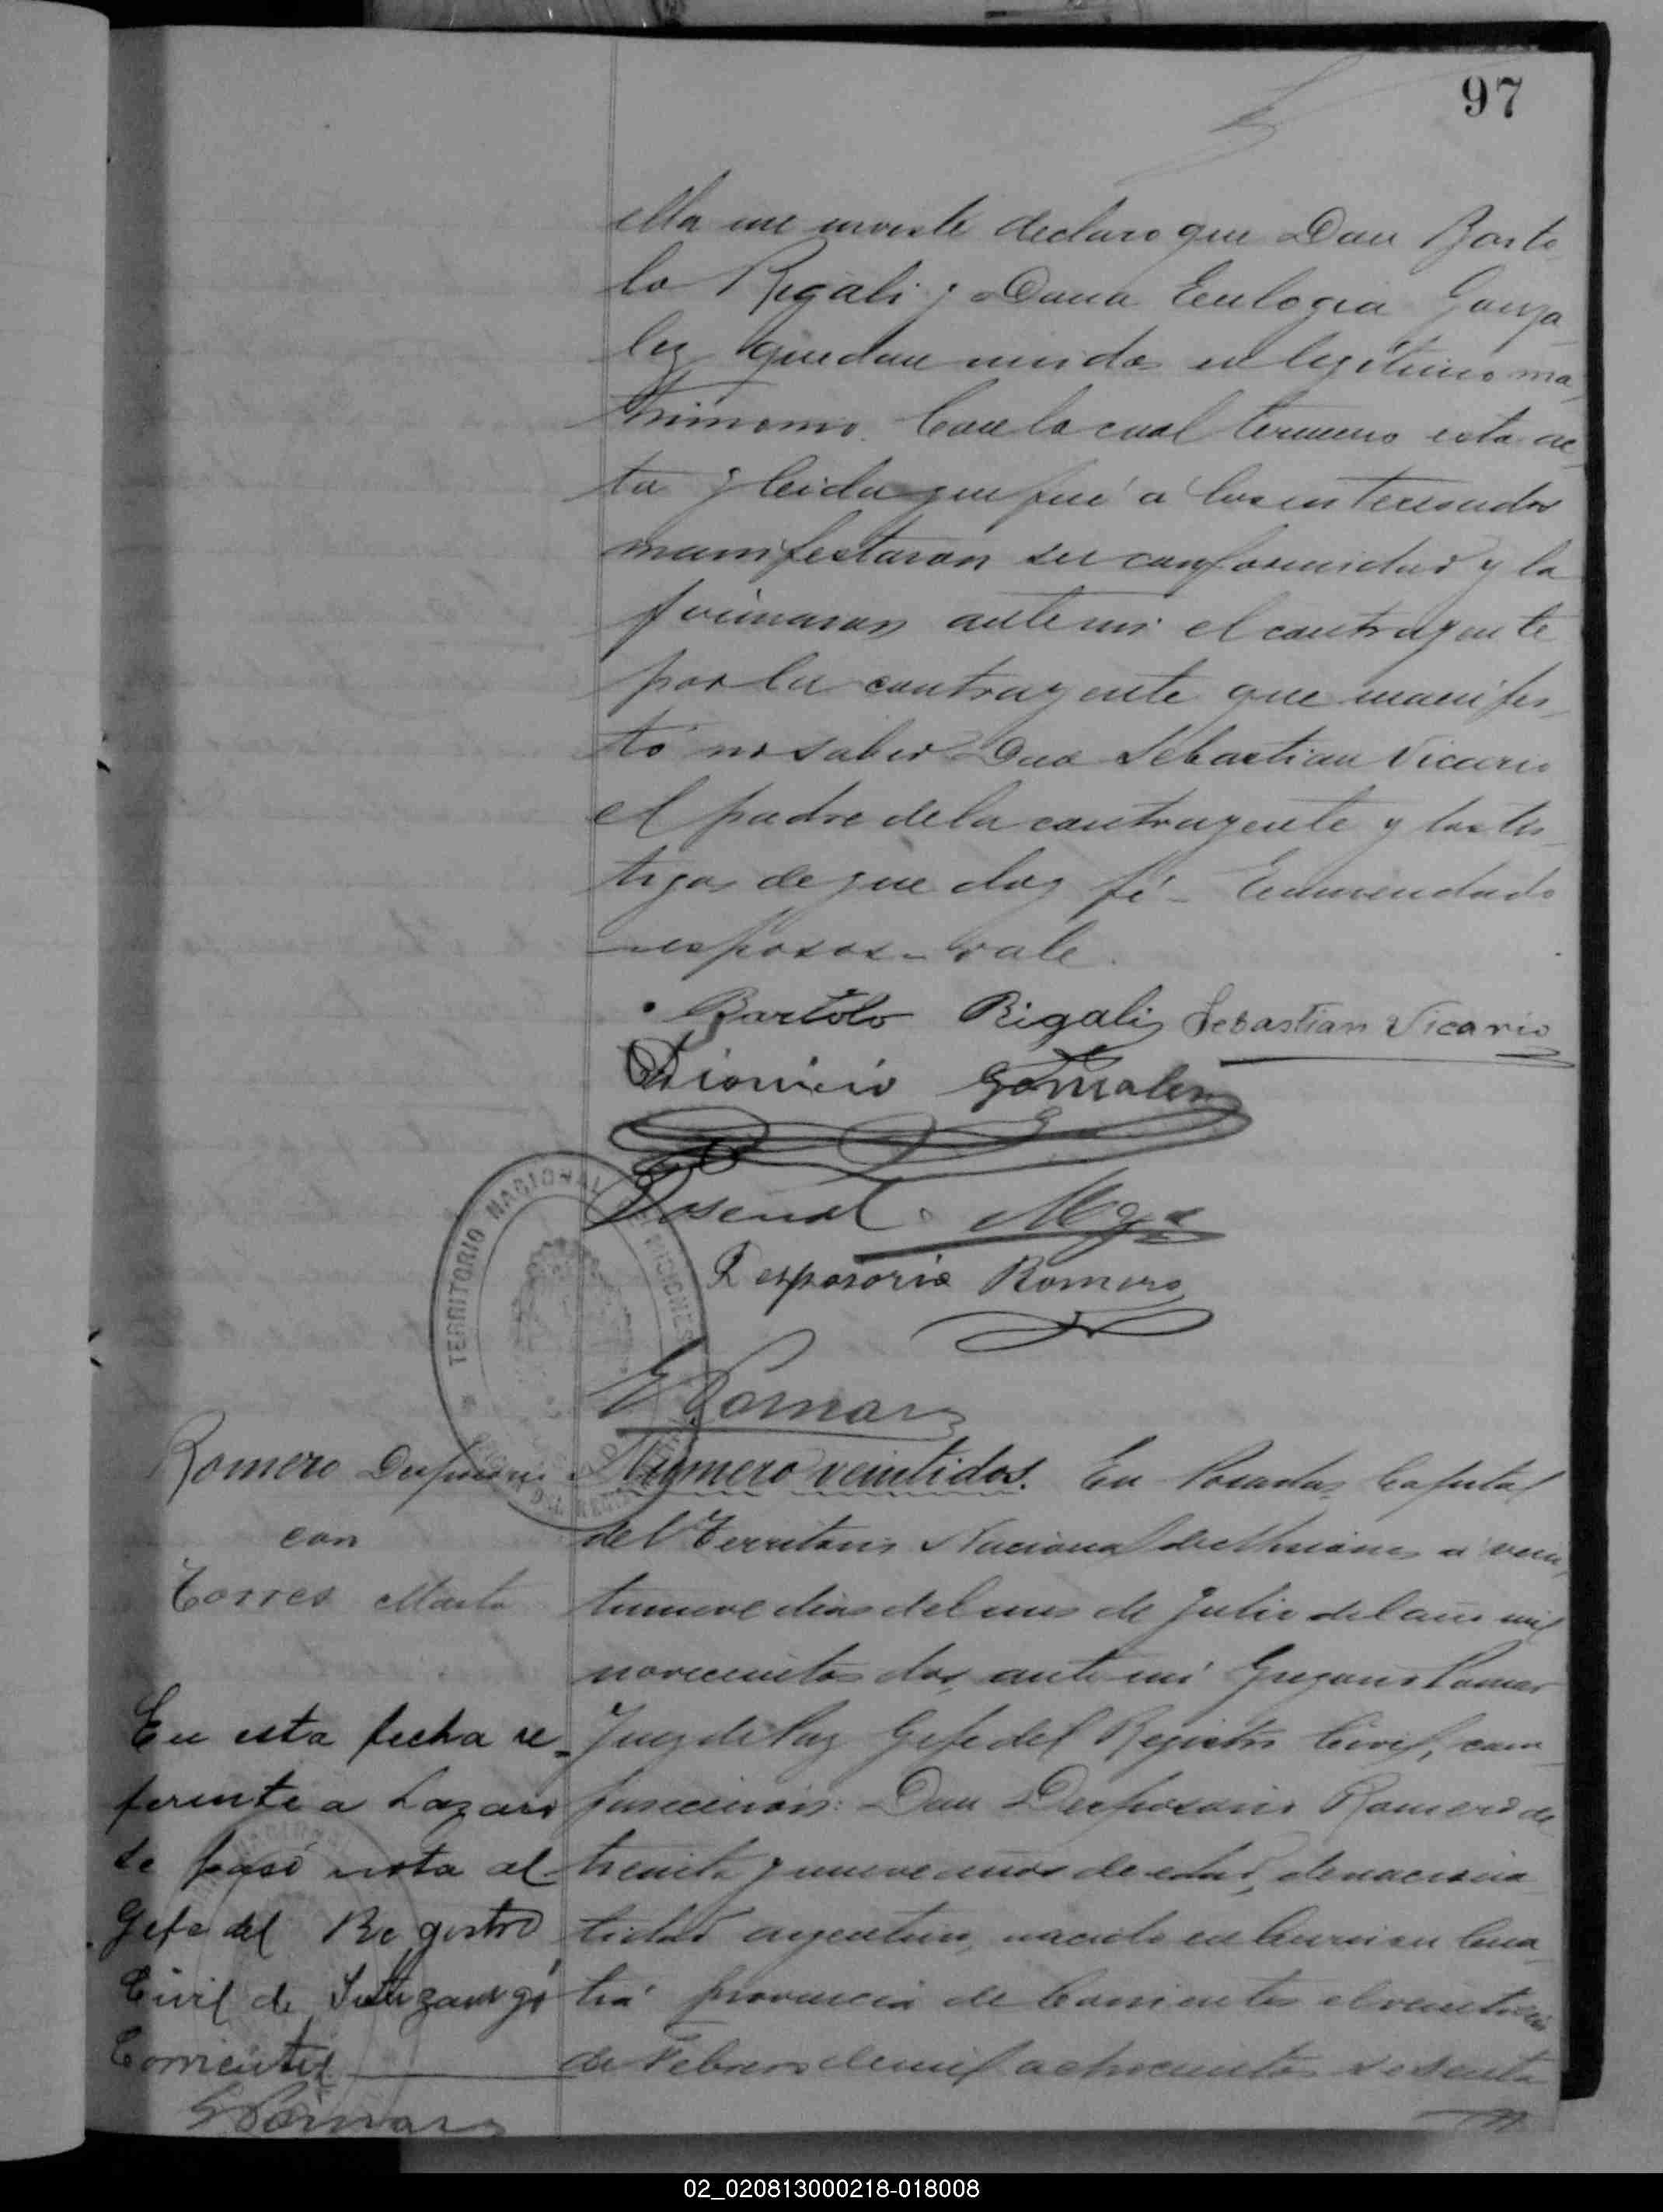 97
ella me inviste declaro que Don Barto
lo Rigali y Doña Eulogia Gonza
lez quedan unidos en legitimo ma
trimonio. Con lo cual termino esta ac
ta y leida que fué á los interesados
manifestaron su conformidad y la
firmaron ante mi el contrayente
por la contrayente que manifes
tó no saber Don Sebastian Vicario
el padre de la contrayente y los tes
tigos de que doy fé - Enmendado
- esposos - vale.
Bartolo Rigali Sebastian Vicario
Dionicio Gonzalez
Rosendo
Desposorio Romero
G Pomar
TERRITORIO NACIONAL DE MISIONES
Romero Desposorio
con
Torres Marta
En esta fecha re-
ferente a Lazaro
se pasó nota al
Gefe del Registro
Civil de Ituzaingó
Corrientes
G Pomar
Numero veintidos. En Posadas, Capital
del Territorio Nacional de Misiones a vein
tinueve dias del mes de Julio del año mil
novecientos dos, ante mi Gregorio Pomar
Juez de Paz Gefe del Registro Civil, com
parecieron: Don Desposorio Romero de
treinta y nueve años de edad, de naciona
lidad argentino, nacido en Curuzu Cua
tiá provincia de Corrientes el
de Febrero de mil ochocientos sesenta
02_020813000218-018008